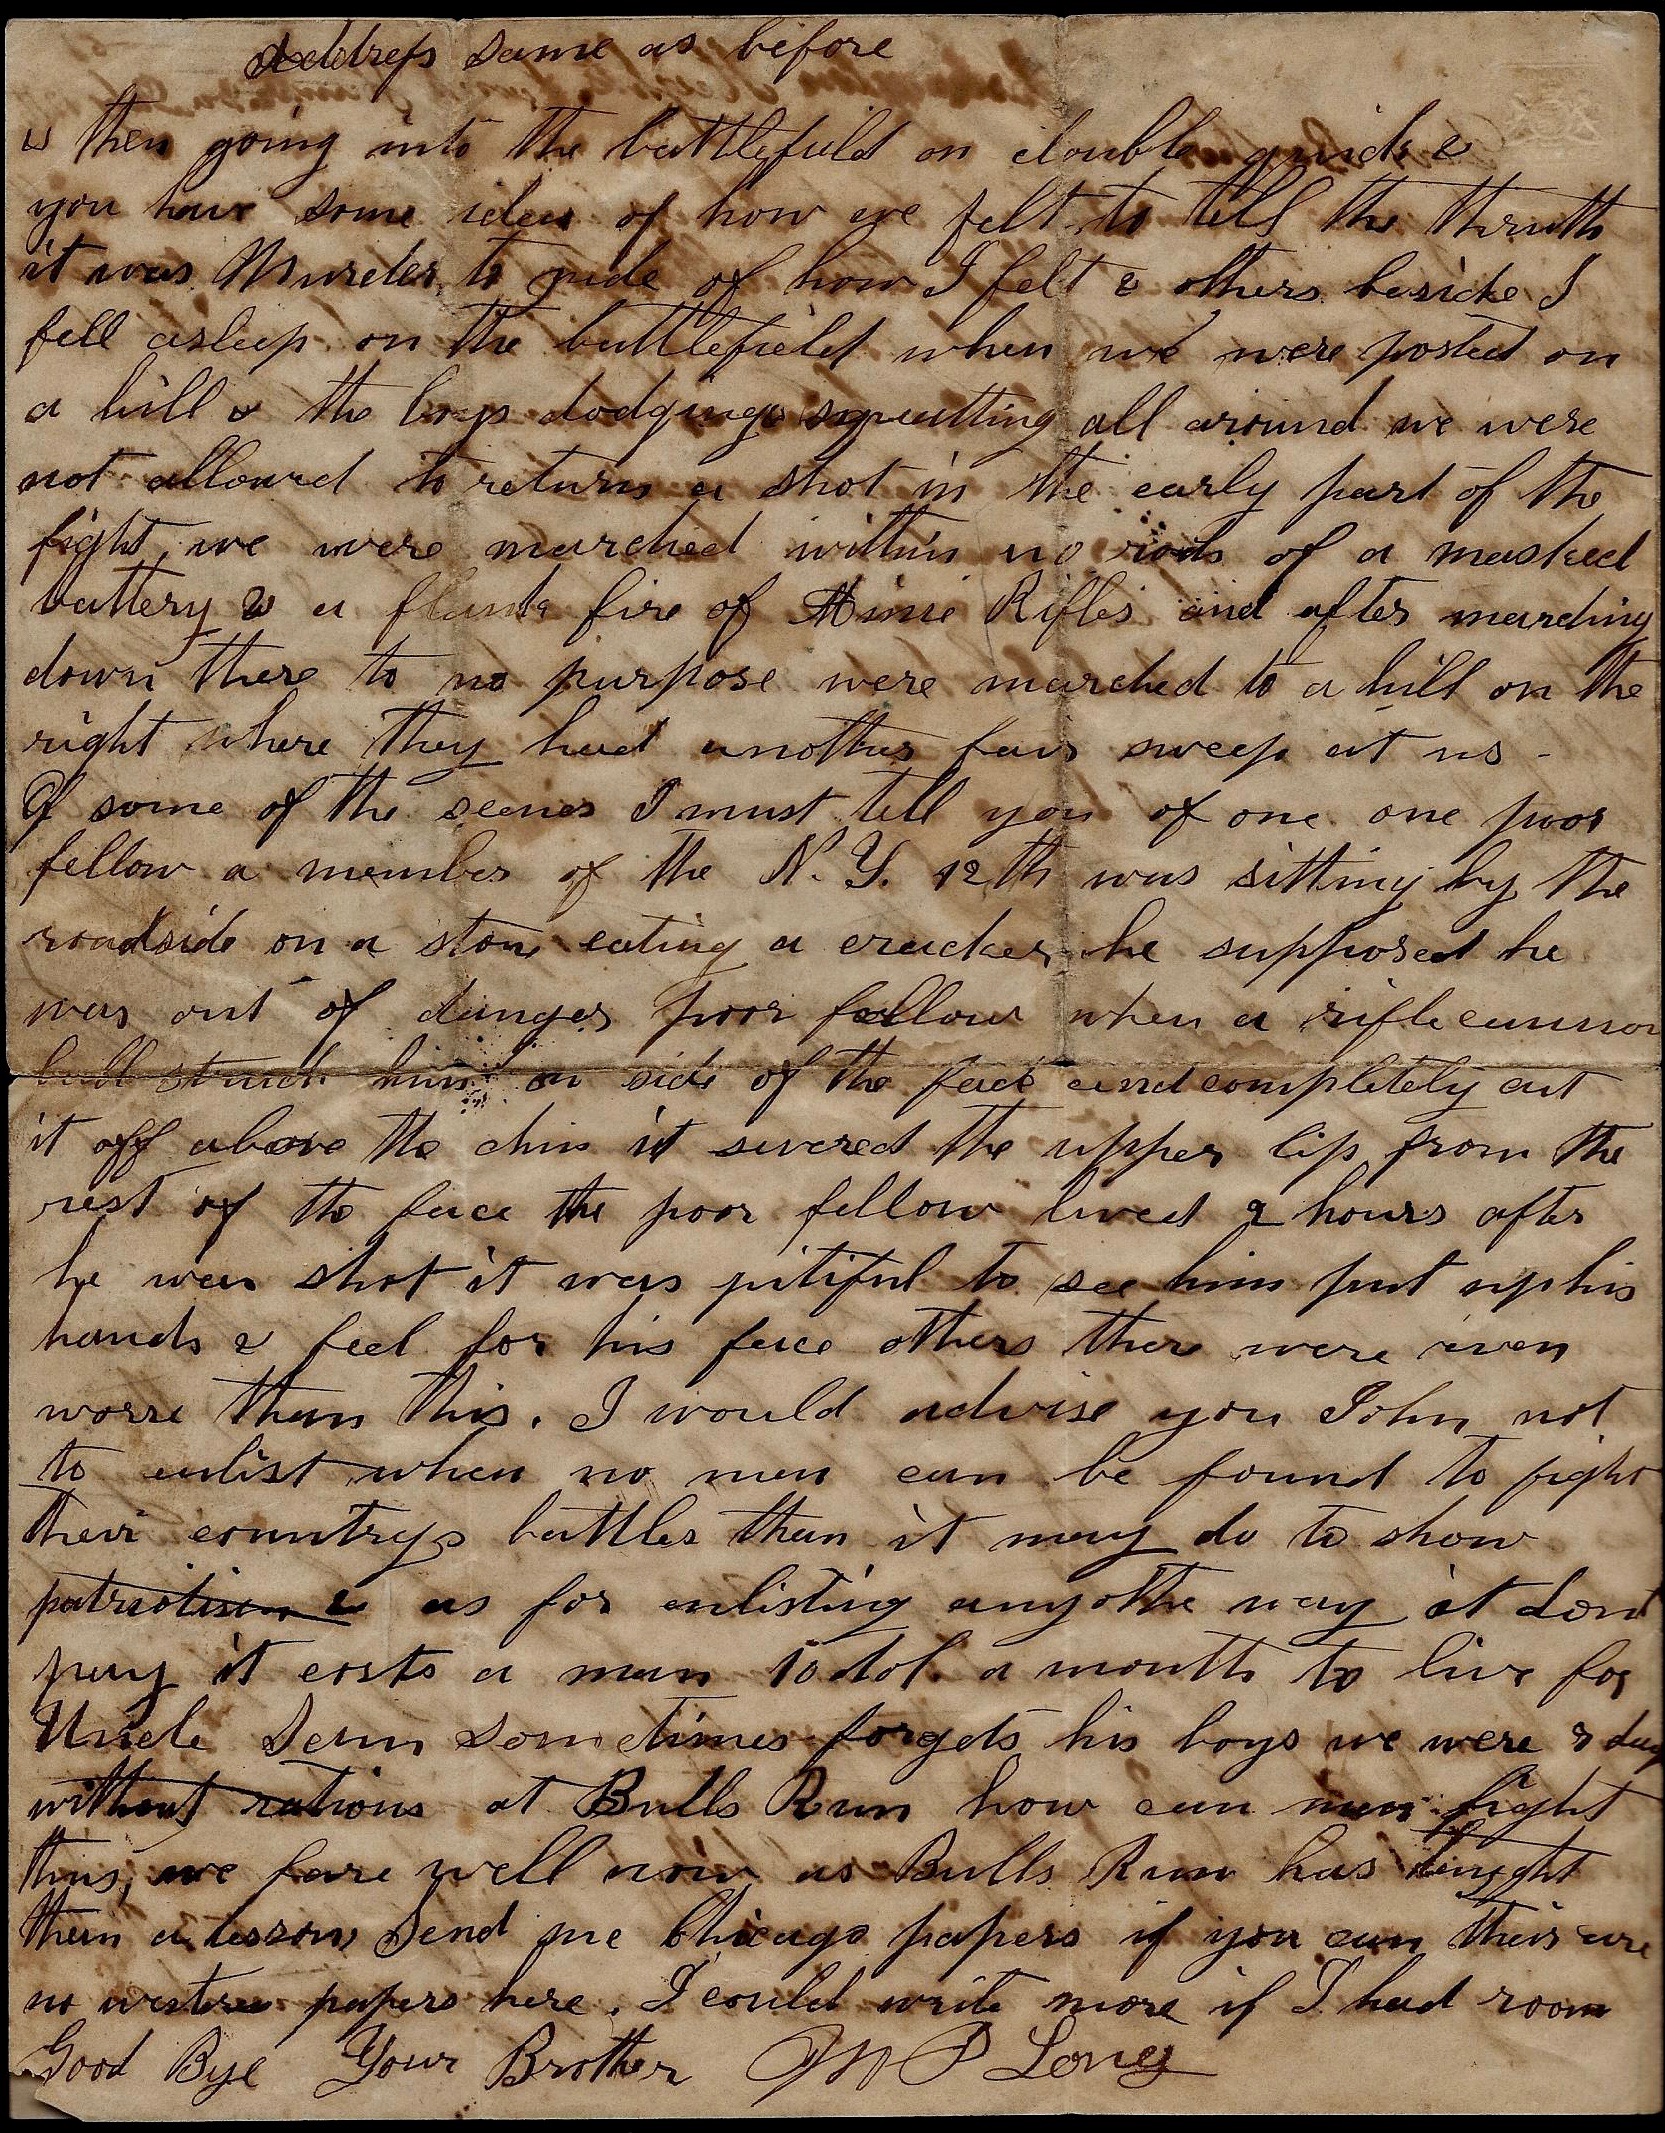 Address same as before
& then going into the battlefield on double quick &
you have some idea of how we felt to tell the thruth
it was Murder, to jude of how I felt & others beside I
fell asleep on the battlefield when we were posted on
a hill & the boys dodging & squatting all around we were
not allowed to return a shot in the early part of the
fight, we were marched within rods of a masked
battery & a flank fire of Minie Rifles and after marching
down there to no purpose were marched to a hill on the
right where they had another fair sweep at us -
Of some of the scenes I must tell you of one one poor
fellow a member of the N. Y. 12th was sitting by the
roadside on a stone eating a cracker he supposed he
was out of danger poor fellow when a rifle cannon
ball struck him on side of the face and completely cut
it off above the chin it severed the upper lip from the
rest of the face the poor fellow lived 2 hours after
he was shot it was pitiful to see him put up his
hands & feel for his face others there were even
worse than this. I would advise you John not
to enlist when no men can be found to fight
their countrys battles then it may do to show
patriotism & as for enlisting anyothe way it dont
pay it costs a man 10 dol. a month to live for
Uncle Sam sometimes forgets his boys we were days
without rations at Bulls Run how can men fight
thus, we fare well now as Bulls Run has taught
them a lesson Send me Chicago papers if you can their are
no western papers here. I could write more if I had room
Good Bye Your Brother P Long